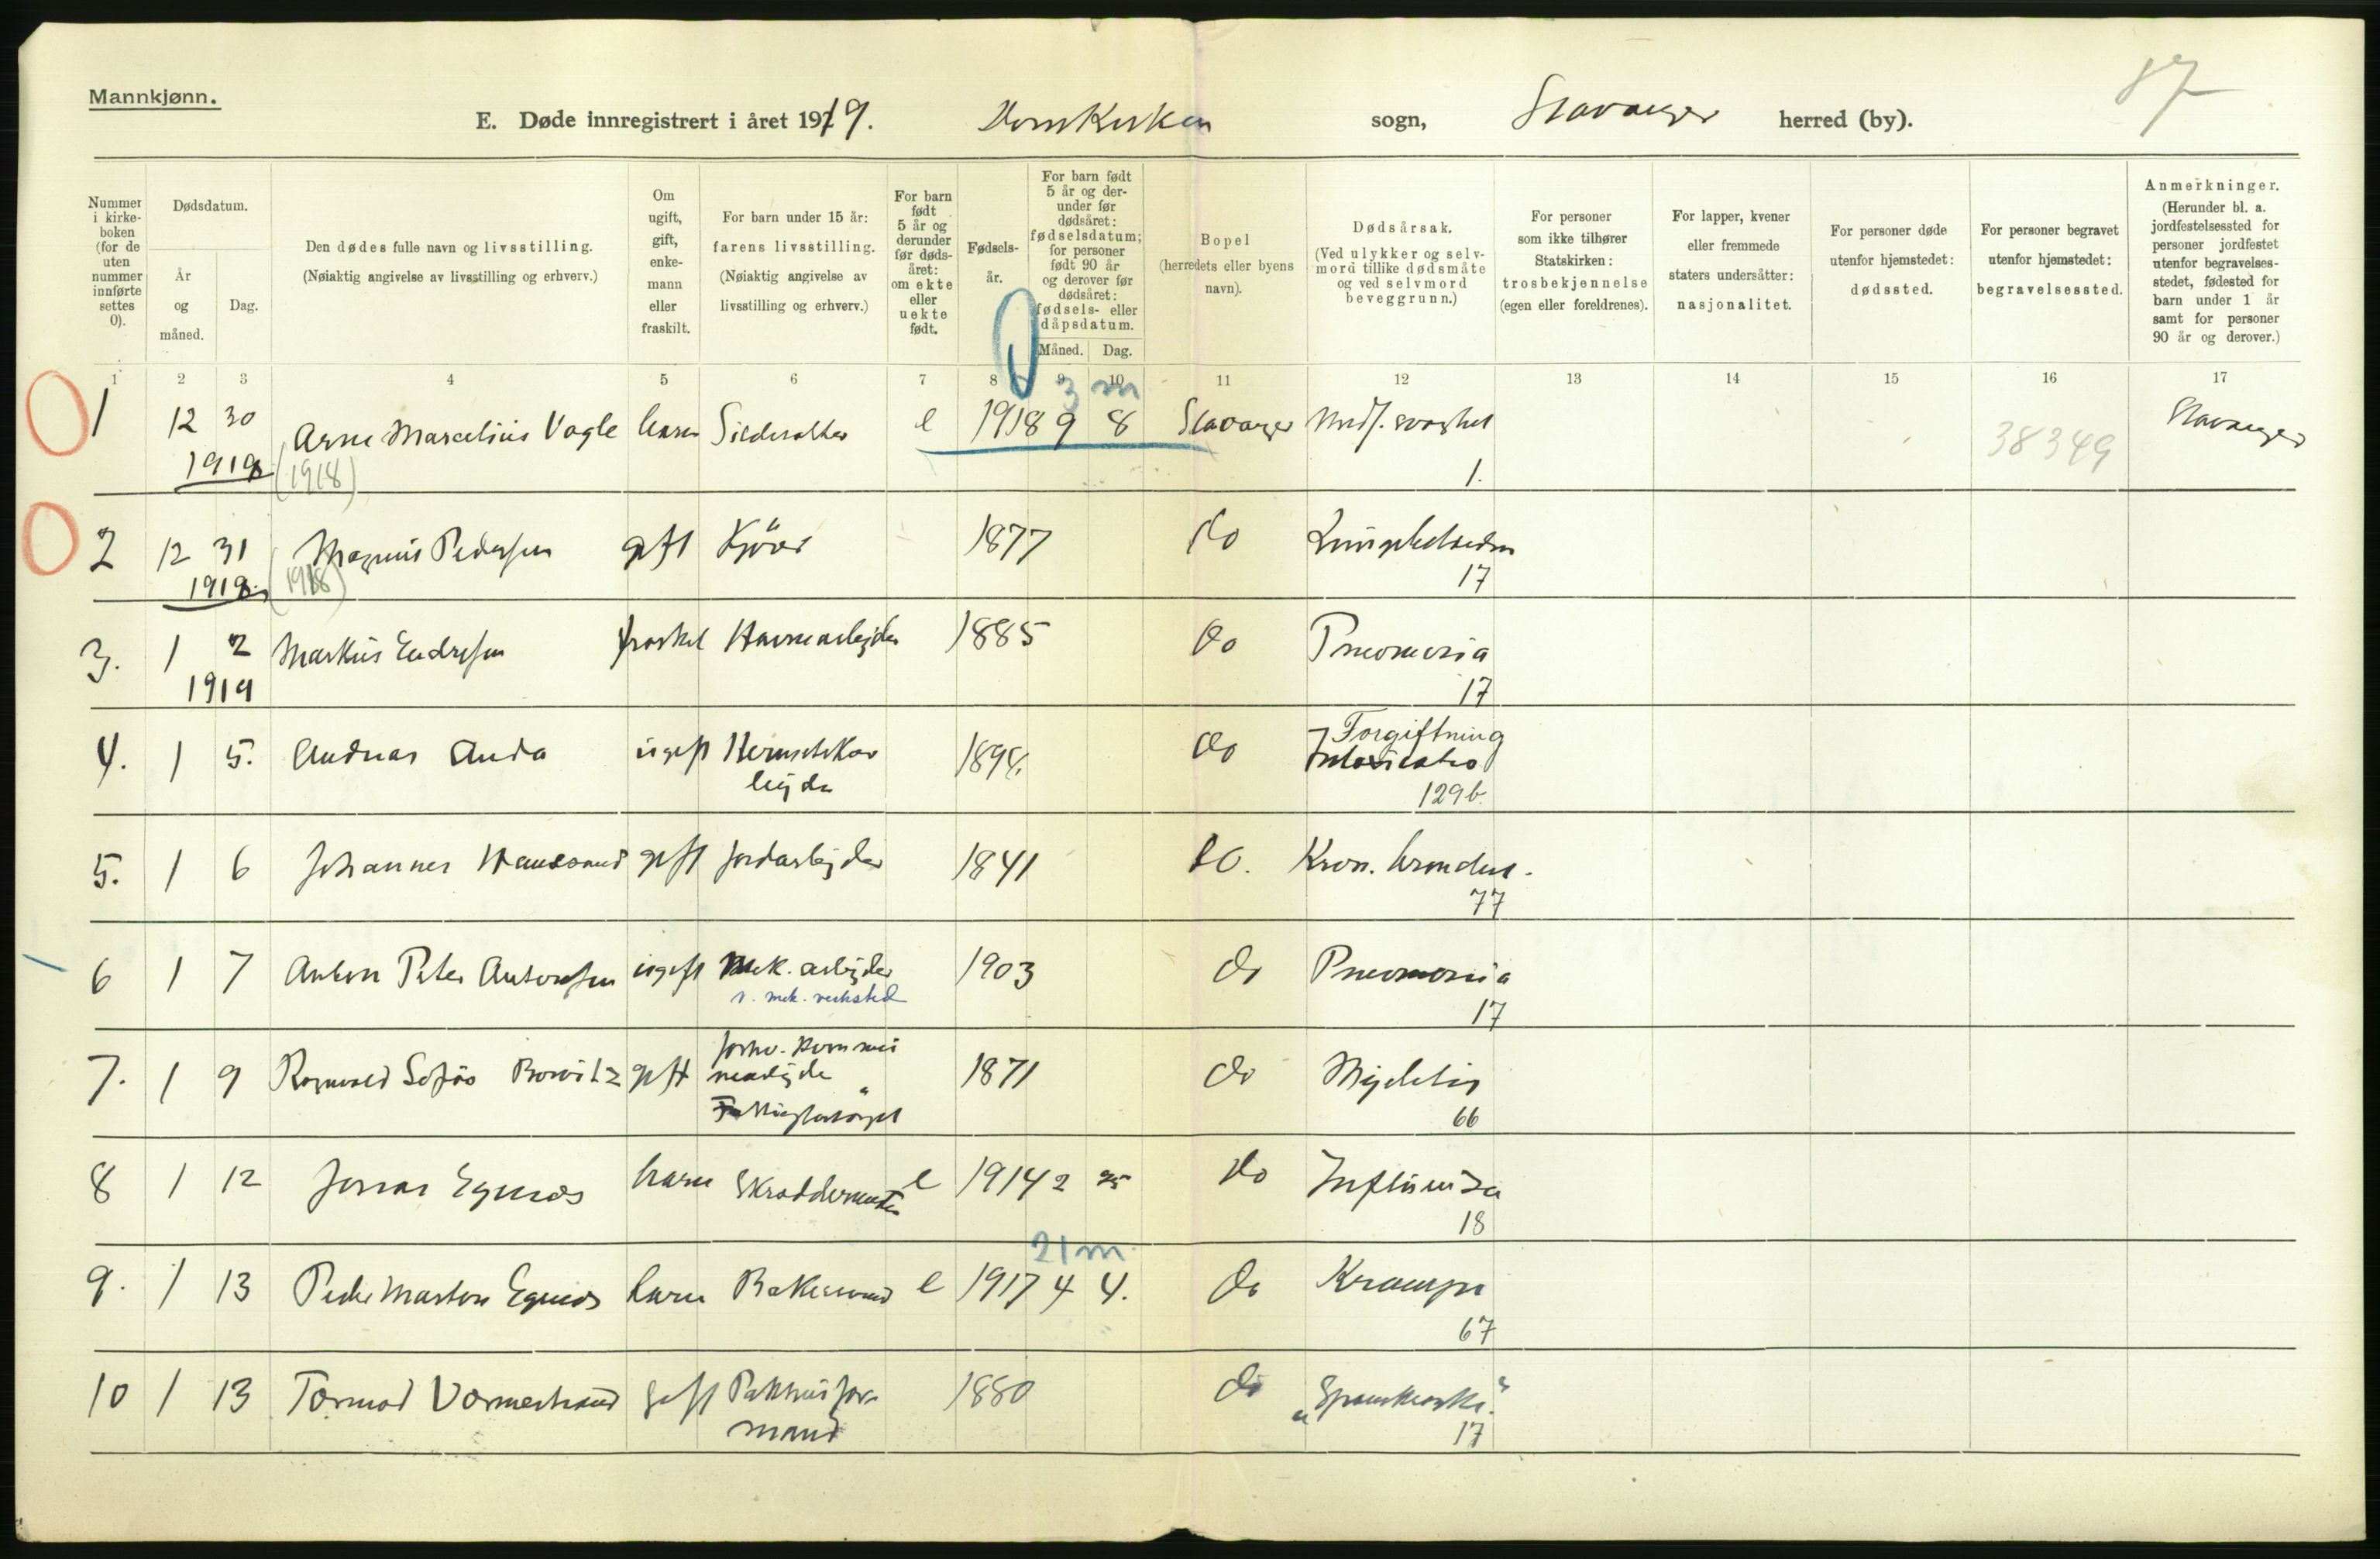 Mannkjønn.
87
E. Døde innregistrert i året 1919. Domkirken sogn, Stavanger herred (by).
Nummer i kirke- boken (for de uten nummer innførte settes 0).
Dødsdatum.
År og måned.
Dag.
Den dødes fulle navn og livsstilling.
(Nøiaktig angivelse av livsstilling og erhverv.)
Om ugift, gift, enke- mann eller fraskilt.
For barn under 15 år: farens livsstilling. (Nøiaktig angivelse av livsstilling og erhverv.)
For barn født 5 år og derunder før døds- året: om ekte eller uekte født.
Fødsels- år.
For barn født 5 år og der- under før dødsåret: fødselsdatum; for personer født 90 år og derover før dødsåret: fødsels- eller dåpsdatum.
Måned. Dag.
Bopel (herredets eller byens navn).
Dødsårsak. (Ved ulykker og selv- mord tillike dødsmåte og ved selvmord beveggrunn.)
For personer som ikke tilhører Statskirken: trosbekjennelse (egen eller foreldrenes).
For lapper, kvener eller fremmede staters undersåtter: nasjonalitet.
For personer døde utenfor hjemstedet: dødssted.
For personer begravet utenfor hjemstedet: begravelsessted.
Anmerkninger. (Herunder bl. a. jordfestelsessted for personer jordfestet utenfor begravelses- stedet, fødested for barn under 1 år samt for personer 90 år og derover.)
1 2 3 4 5 6 7 8 9 10 11 12 13 14 15 16 17
3 m
1 12 30 Arne Marcelius Vagle barn Sildesalter e 1918 9 8 Stavanger Medf. svaghet 38349 Stavanger
1919 (1918) 1.
2 12 31 Magnus Pedersen gift 1877 do
1918 (1918) 17
3. 1 2 Markus Endresen fraskil Havnearbejder 1885 do Pneomonia
1919 17
4. 1 5. Andreas Anda ugift Hermetikar 1898. do Forgiftning
bejder Intoxicatio
129 b.
5. 1 6 Johannes gift Jordarbejder 1841 do. Kron. bronchit.
77
6 1 7 Anton Peter Antonsen ugift Mek. arbejder 1903 do Pneomonia
v. mek. verksted 17
7. 1 9 Ragnvald Sofus gift 1871 do Myelitis
66
8 1 12 Jonas Egenes barn Skreddermester e 1914 2 25 do Influenza
18
21 m
9. 1 13 Peder Marton Egenes barn Bakersvend e 1917 4 4. do Krampe
67
10 1 13 Tormod Vormestrand gift Pakhusfor- 1880 do „Spanskesyke"
mand 17